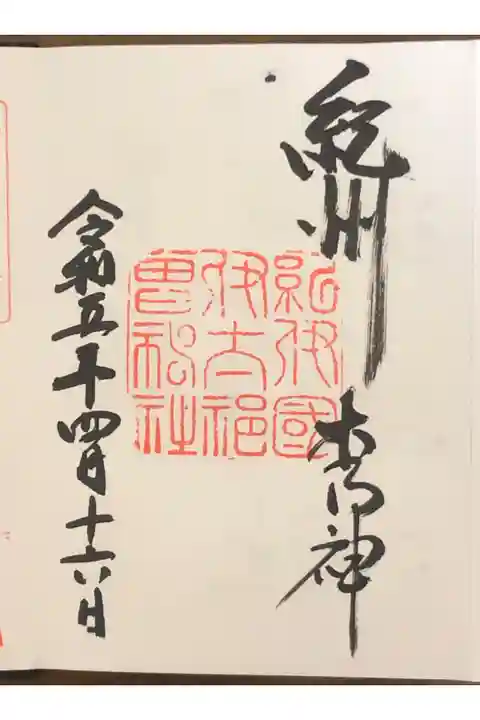 紀州 木の神
紀伊國
伊太祁
曽神社
令和五年四月十六日